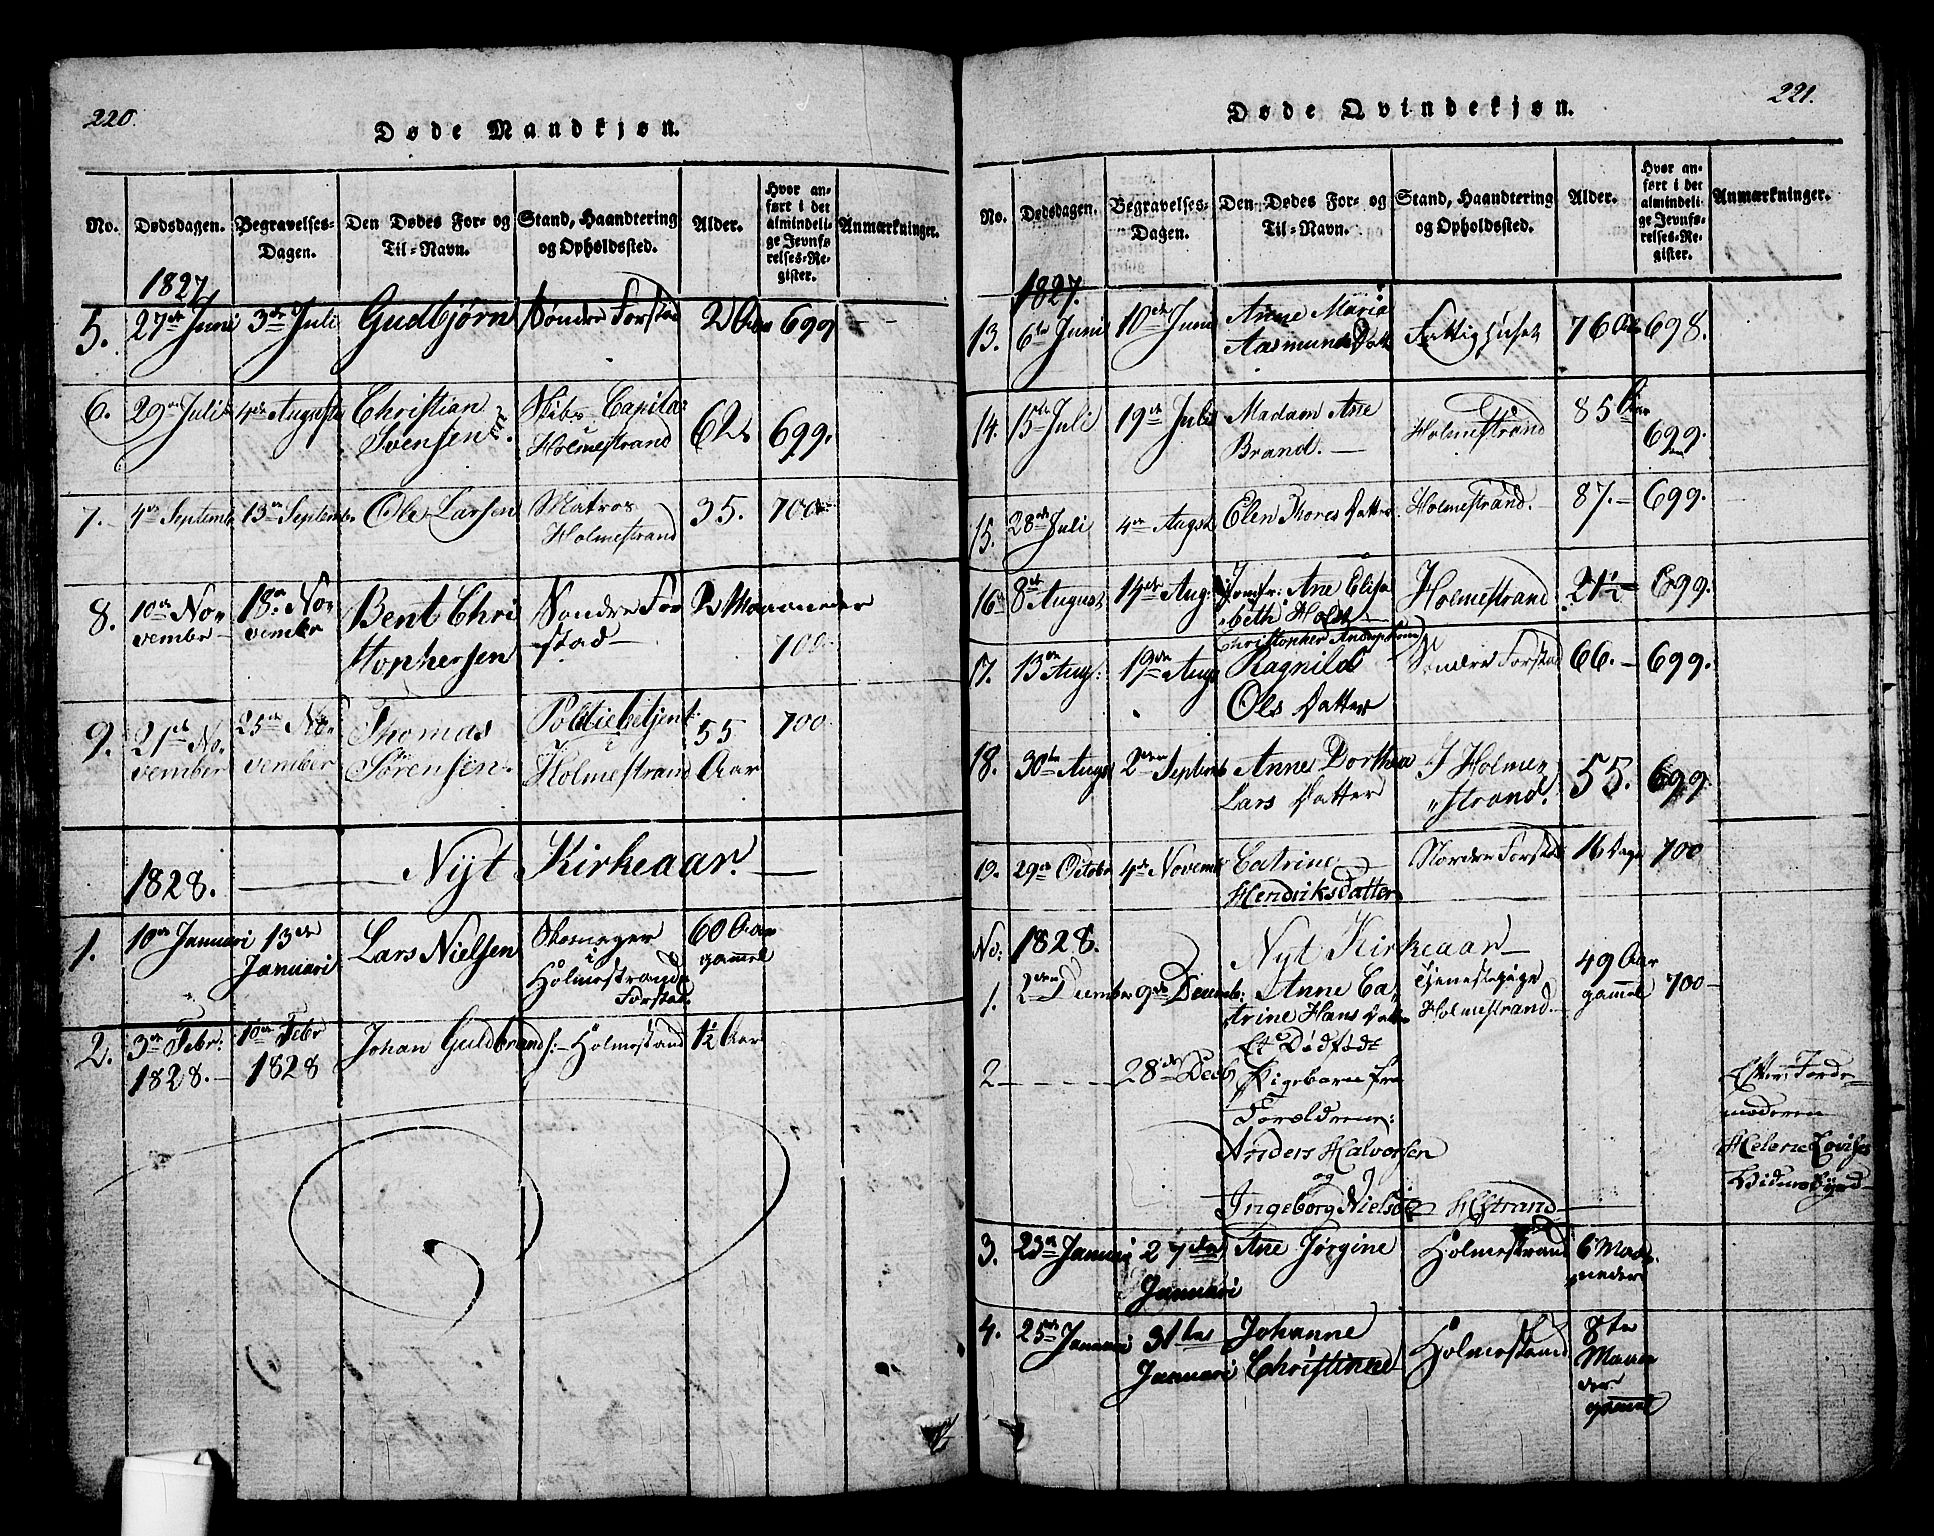 220.
Døde Mandkjøn.
No. Dødsdagen. Begravelses-Dagen. Den Dødes For- og Til-Navn. Stand, Haandtering og Opholdssted. Alder. Hvor anført i det almindelige Jevnførelses-Register. Anmærkninger.
1827
5. 27de Juni 3de Juli Gudbjørn Søndre Forstad 2 Aar 699
6. 29de Juli 4de Augusti Christian Svensen Skibs Capita: Holmestrand 62 699.
7. 4de Septemb 13de Septemb Ole Larsen Matros Holmestrand 35. 700
8. 10de November 18de November Bent Christophersen Søndre Forstad 2 Maaneder 700.
9. 21de November 25de November Thomas Sørensen. Politiebetjent i Holmestrand 55 Aar 700
1828. Nyt Kirkeaar.
1. 10de Januari 13de Januari Lars Nielsen Skomager i Holmestrands Forstad 60 Aar gammel
2. 3de Febr: 1828. 10de Febr 1828 Johan Guldbrands: Holmestrand 1½ Aar
221.
Døde Qvindekjøn.
No. Dødsdagen. Begravelses-Dagen. Den Dødes For- og Til-Navn. Stand, Haandtering og Opholdssted. Alder. Hvor anført i det almindelige Jevnførelses-Register. Anmærkninger.
1827.
13. 6te Juni 10de Juni Anne Maria Aasmunds Datt Fattighuset 76 Aar 698.
14. 15de Juli 19de Juli Madam Ane Brand. Holmestrand 85 Aar 699.
15. 28de Juli 4de Augst Elen Thores Datter Holmestrand. 87. 699.
16 8de August 14de Aug: Jomfr: Ane Elisabeth Holst Holmestrand 21½ 699.
17. 13de Aug: 19de Aug Christopher Ragnild Ols Datter Søndre Forstad 66. 699.
18. 30te Aug 2den Septemb Anne Dorthea Lars Datter I Holmestrand. 55. 699.
19. 29de Octobr 4de Novemb Catrine Hendriksdatter Nordre Forstad 16 Dage 700
No: 1828. Nyt Kirkeaar
1. 2den December 9de Decemb: Anne Catrine Hans Datter Tjenestepige Holmestrand. 49 Aar gammel 700
2 28de Decb Et Dødfødt Pigebarn fra Forældrene: Anders Halvorsen og Ingeborg Nielsd: HStrand Efter Jordemoderen Helene Lovise
3. 23de Januari 27de Januari Ane Jørgine Holmestrand 6 Maaneder
4. 25de Januari 31te Januari Johanne Christinne Holmestrand 8te Maaneder gammel